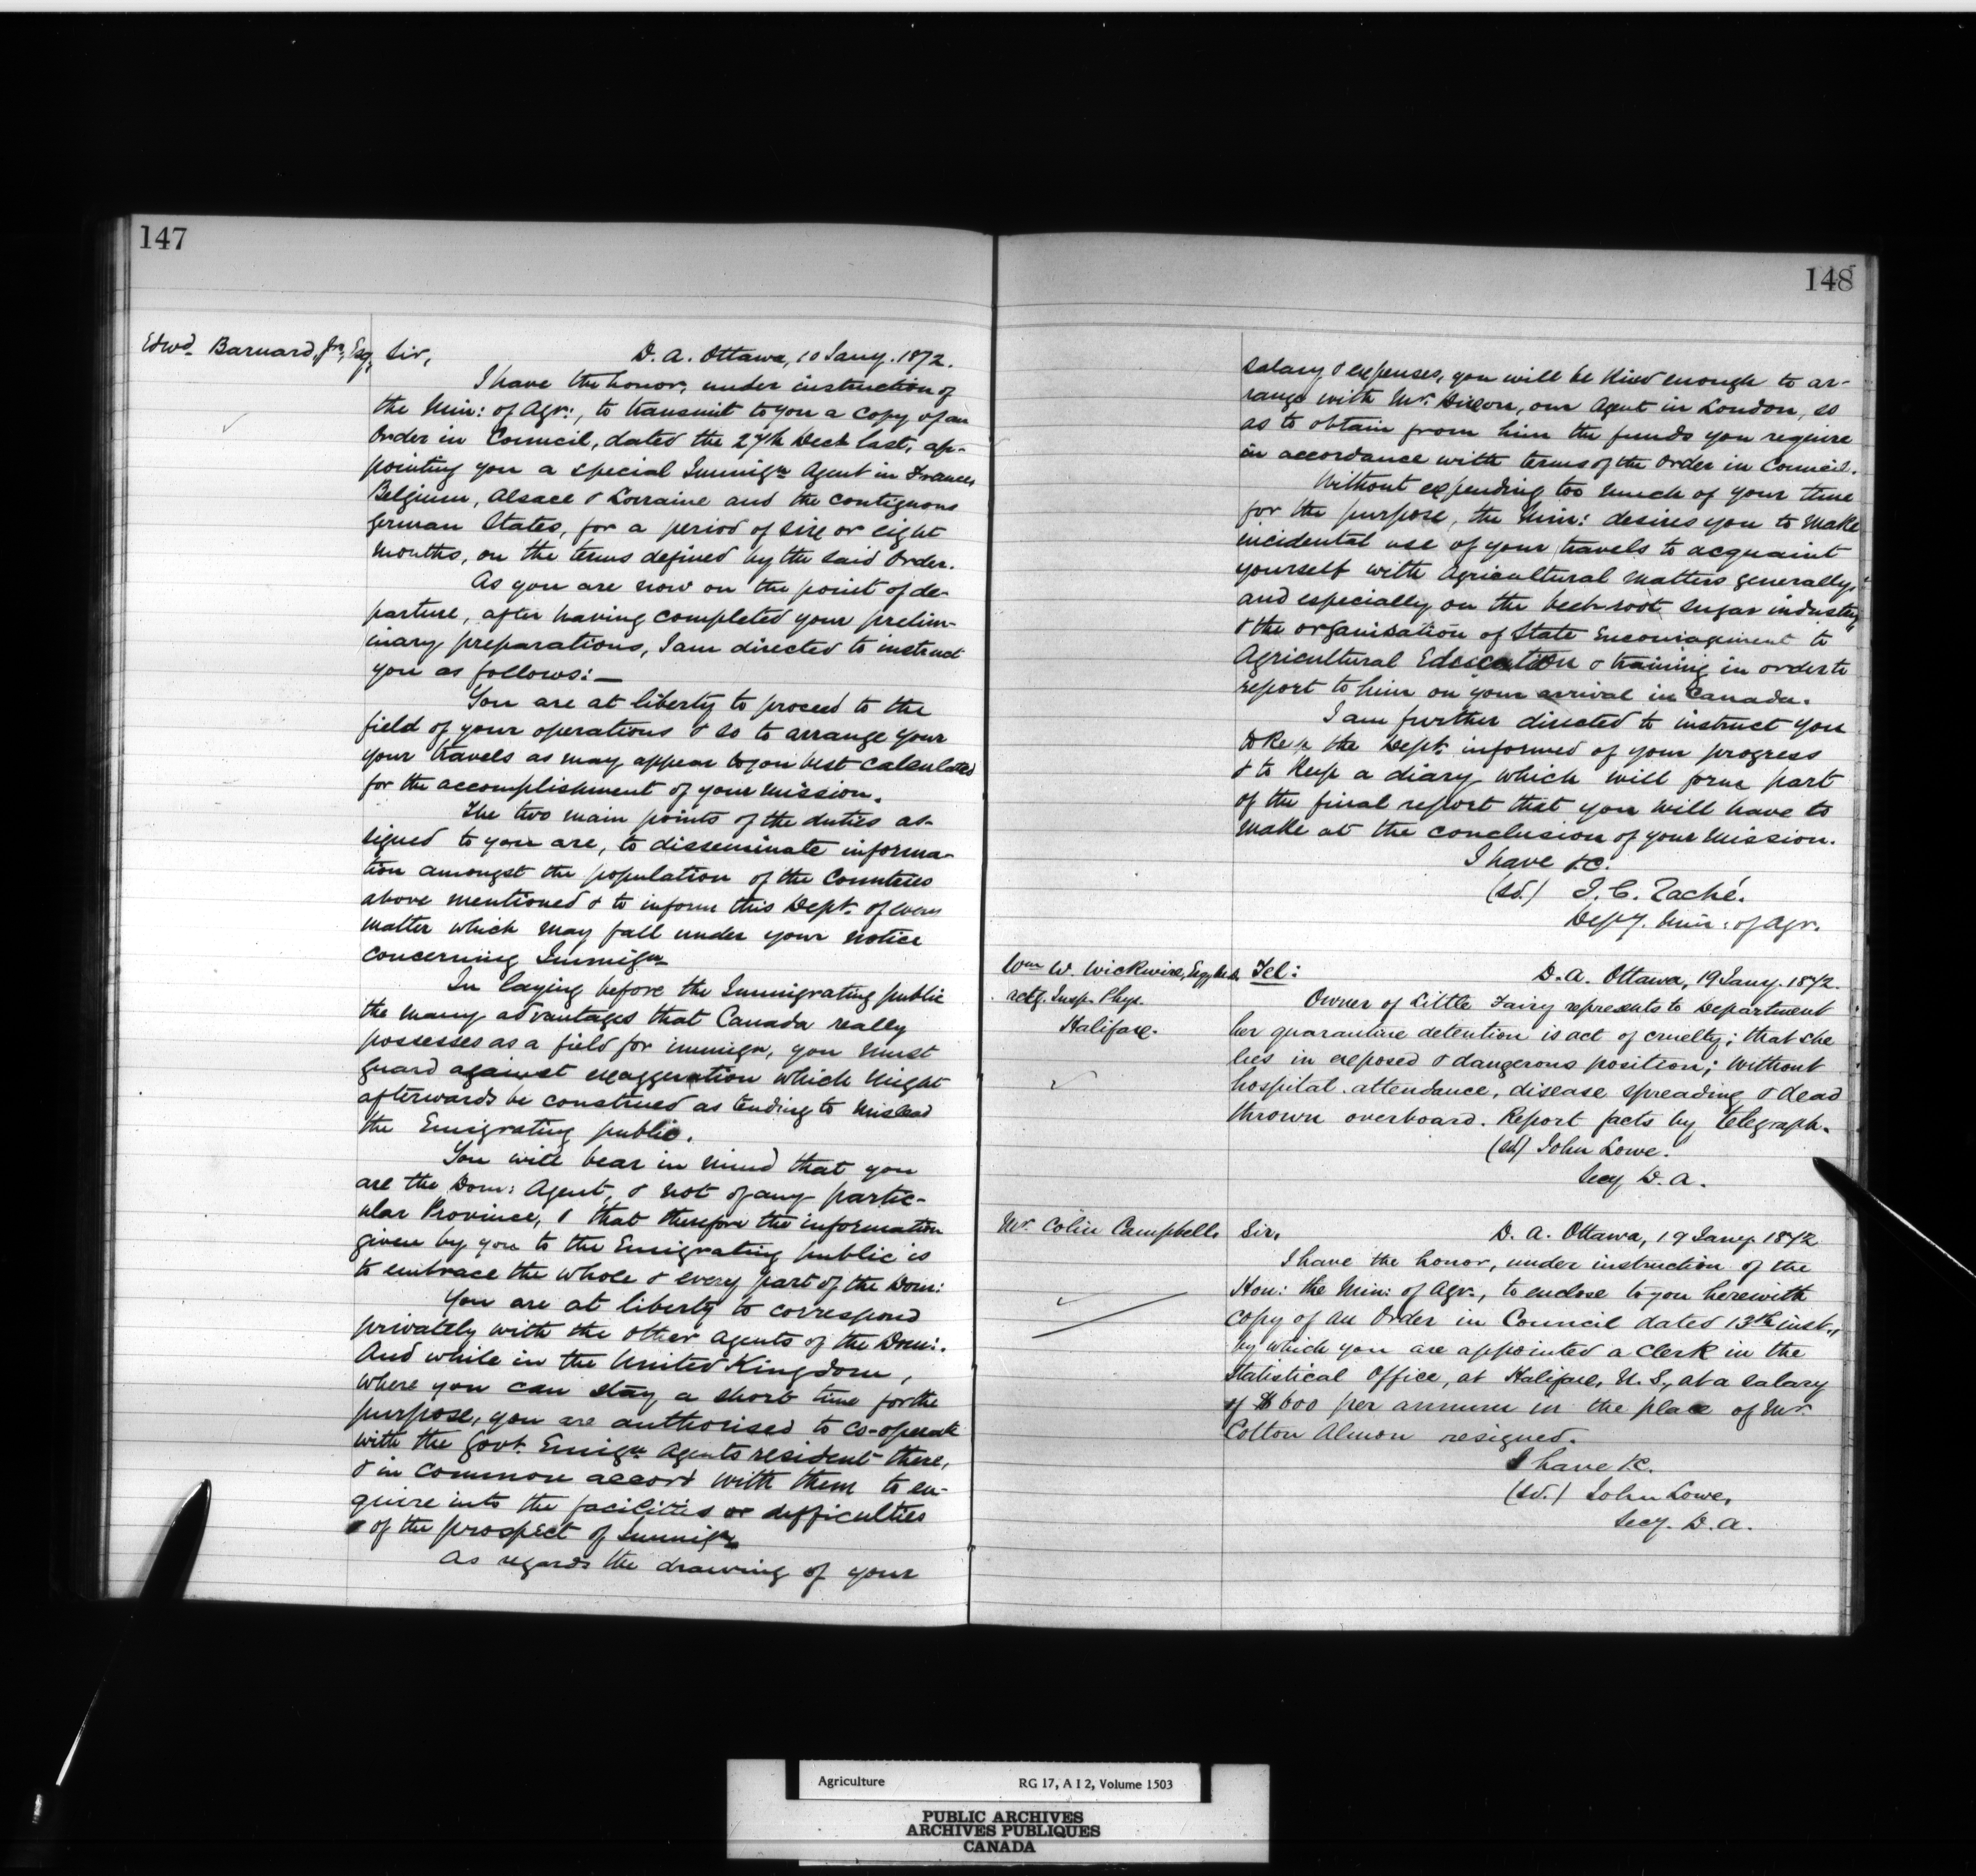 147
Edwd. Barnard, Jnr, Esq,
Sir, D. A. Ottawa, 10 Jany. 1872.
I have the honor, under instruction of
the Min: of Agr:, to transmit to you a copy of an
Order in Council, dated the 27th Dect. last, ap-
pointing you a special Immign. Agent in France,
Belgium, Alsace & Lorraine and the contiguous
German States, for a period of six or eight
months, on the terms defined by the said Order.
As you are now on the point of de-
parture, after having completed your prelim-
inary preparations, I am directed to instruct
you as follows:—
You are at liberty to proceed to the
field of your operations & so to arrange your
your travels as may appear to you best calculated
for the accomplishment of your mission.
The two main points of the duties as-
signed to you are, to disseminate informa-
tion amongst the population of the Countries
above mentioned & to inform this Dept. of every
matter which may fall under your notice
concerning Immign.
In laying before the Immigrating public
the many advantages that Canada really
possesses as a field for immign, you must
guard against exaggeration which might
afterwards be construed as tending to mislead
the Emigrating public.
You will bear in mind that you
are the Dom: Agent, & not of any partic-
ular Province, & that therefore the information
given by you to the Emigrating public is
to embrace the whole & every part of the Dom:
You are at liberty to correspond
privately with the other agents of the Dom:.
And while in the United Kingdom,
where you can stay a short time for the
purpose, you are authorised to co-operate
with the Govt. Emign. Agents resident there,
& in common accord with them to en-
quire into the facilities or difficulties
of the prospect of Immign.
As regards the drawing of your
148
salary & expenses, you will be kind enough to ar-
range with Mr. Dixon, our Agent in London, so
as to obtain from him the funds you require
in accordance with terms of the Order in Council.
Without expending too much of your time
for the purpose, the Min: desires you to make
incidental use of your travels to acquaint
yourself with Agricultural matters generally,
and especially on the beet-root sugar industry,
& the organisation of State Encouragement to
Agricultural Education & training in order to
report to him on your arrival in Canada.
I am further directed to instruct you
to keep the Dept. informed of your progress
& to keep a diary which will form part
of the final report that you will have to
make at the conclusion of your mission.
I have &c.
(sd.) J. C. Taché.
Depy. Min: of Agr.
Wm W. Wickwire, Esq, M.D.
actg. Insp. Phys.
Halifax.
Tel: D. A. Ottawa, 19 Jany. 1872.
Owner of Little Fairy represents to Department
her quarantine detention is act of cruelty; that she
lies in exposed & dangerous position; without
hospital attendance, disease spreading & dead
thrown overboard. Report facts by telegraph.
(sd) John Lowe.
Secy D. A.
Mr. Colin Campbell,
Sir, D. A. Ottawa, 19 Jany 1872
I have the honor, under instruction of the
Hon: the Min: of Agr., to enclose to you herewith
copy of an Order in Council dated 13th inst.,
by which you are appointed a Clerk in the
Statistical Office, at Halifax, N. S., at a salary
of $600 per annum in the place of Mr
Cotton Almon resigned.
I have &c.
(sd.) John Lowe,
Secy. D. A.
Agriculture RG 17, A I 2, Volume 1503
PUBLIC ARCHIVES
ARCHIVES PUBLIQUES
CANADA